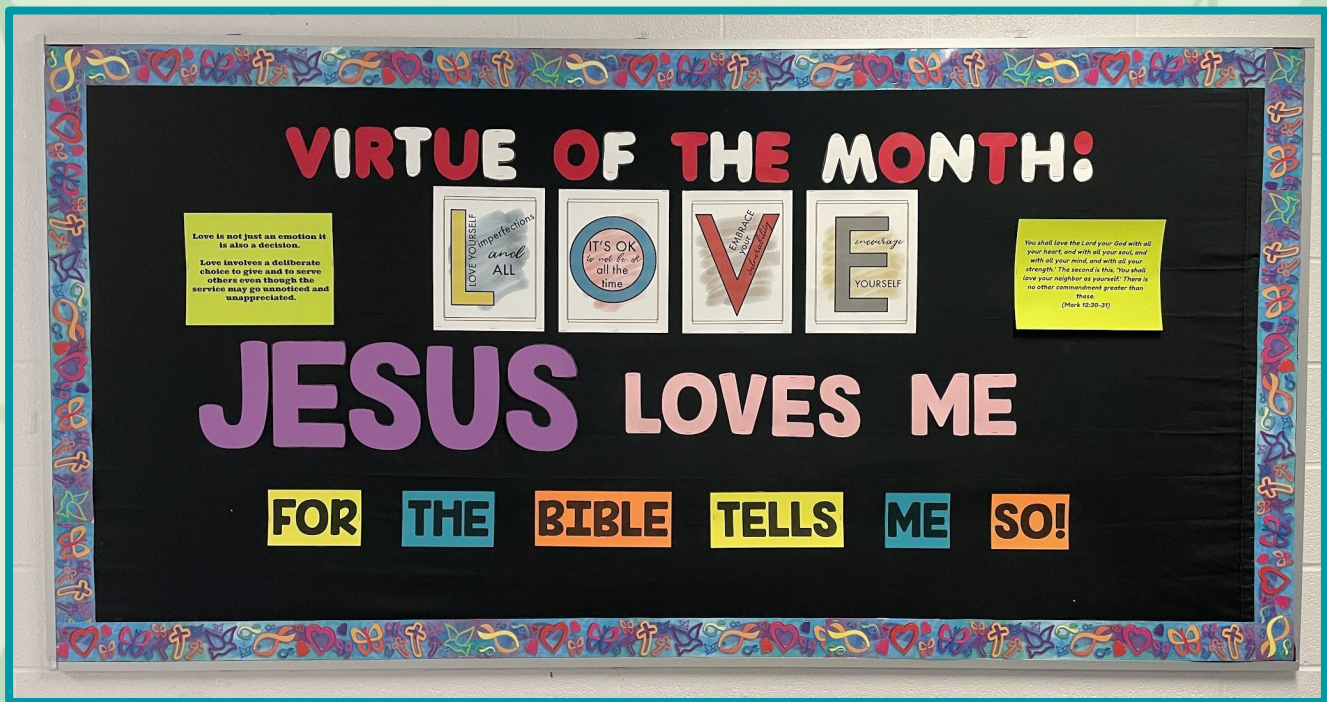 VIRTUE OF THE MONTH:
Love is not just an emotion it
is also a decision.
Love involves a deliberate
choice to give and to serve
others even though the
service may go unnoticed and
unappreciated.
L
LOVE YOURSELF
imperfections
and
ALL
O
IT'S OK
to not be ok
all the
time
V
EMBRACE
your
vulnerability
E
encourage
YOURSELF
You shall love the Lord your God with all
your heart, and with all your soul, and
with all your mind, and with all your
strength.' The second is this, 'You shall
love your neighbor as yourself.' There is
no other commandment greater than
these.
(Mark 12:30-31)
JESUS LOVES ME
FOR THE BIBLE TELLS ME SO!